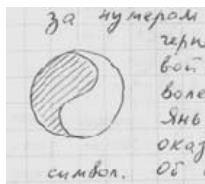 за нумером
черн
вой
воле
Янь
оказ
символ. Об